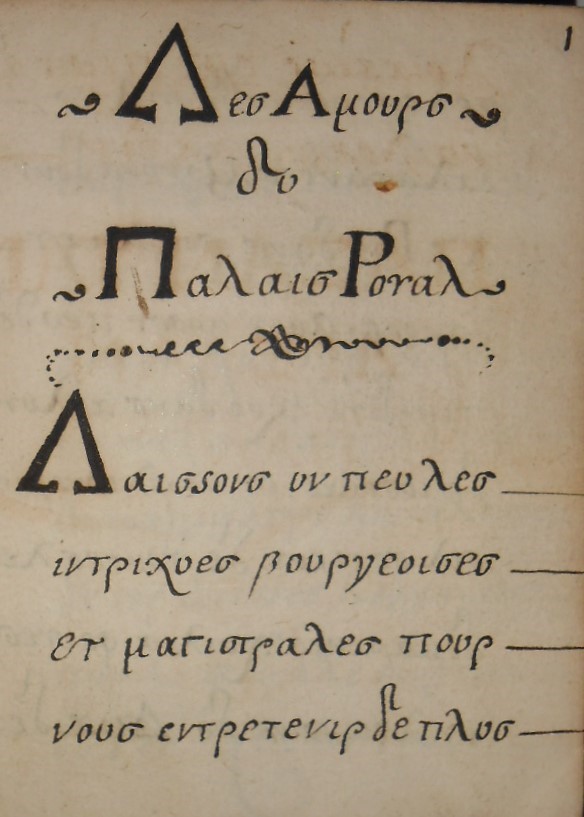 1
Λες Αμουρς
δυ
Παλαις Ρογαλ
Λαισσονς υν πευ λες
ιντριχυες βουργεοισες
ετ μαγιστραλες πουρ
νους εντρετενιρ δε πλυς